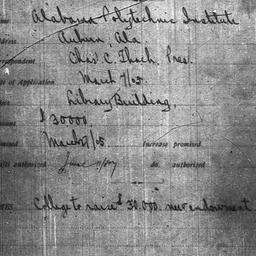 Alabama Polytechnic Institute
Auburn, Ala
respondent Chas. C. Thach, Pres.
of Application March 7/05
Library Building,
$ 20000
March 7/05 Increase promised
authorized June 11/07 do. authorized
College to raise $ 30.000. new endowment